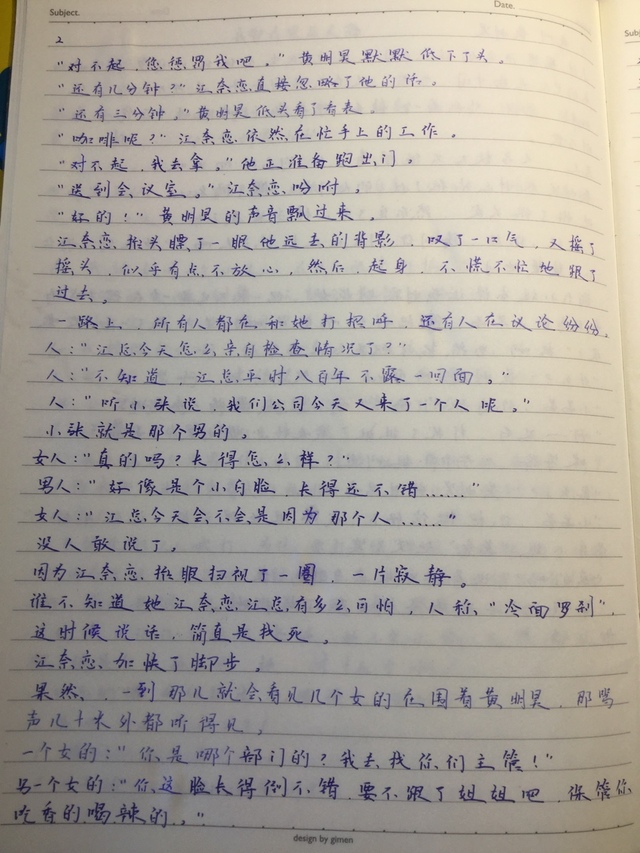 Subject.
Date.
2
"对不起，您惩罚我吧。"黄明昊默默低下了头。
"还有几分钟？"江奈恋直接忽略了他的话。
"还有三分钟。"黄明昊低头看了看表。
"咖啡呢？"江奈恋依然在忙手上的工作。
"对不起，我去拿。"他正准备跑出门。
"送到会议室。"江奈恋吩咐。
"好的！"黄明昊的声音飘过来。
江奈恋抬头瞟了一眼他远去的背影，叹了一口气，又摇了
摇头，似乎有点不放心，然后，起身，不慌不忙地跟了
过去。
一路上，所有人都在和她打招呼，还有人在议论纷纷。
人："江总今天怎么亲自检查情况了？"
人："不知道，江总平时八百年不露一回面。"
人："听小张说，我们公司今天又来了一个人呢。"
小张就是那个男的。
女人："真的吗？长得怎么样？"
男人："好像是个小白脸，长得还不错……"
女人："江总今天会不会是因为那个人……"
没人敢说了。
因为江奈恋抬眼扫视了一圈，一片寂静。
谁不知道她江奈恋江总有多么可怕，人称"冷面罗刹"，
这时候说话，简直是找死。
江奈恋加快了脚步。
果然，一到那儿就会看见几个女的在围着黄明昊，那骂
声几十米外都听得见。
一个女的："你是哪个部门的？我去找你们主管！"
另一个女的："你这脸长得倒不错，要不跟了姐姐吧，保管你
吃香的喝辣的。"
design by gimen